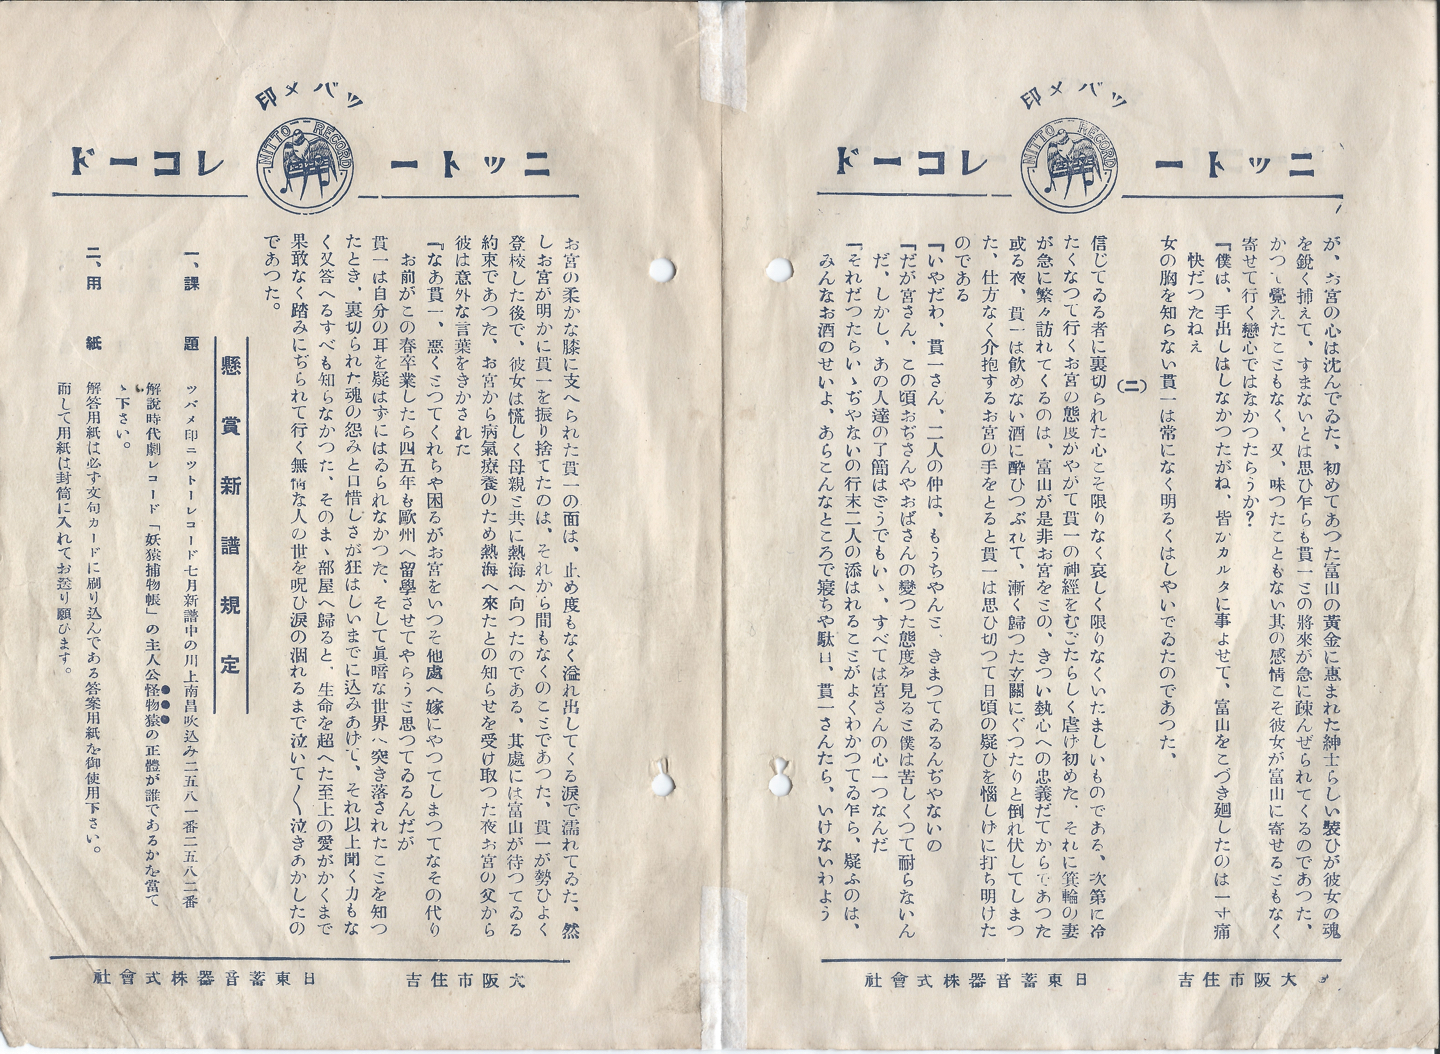 ツバメ印
ニットーレコード
NITTO RECORD
が、お宮の心は沈んでゐた、初めてあつた富山の黄金に恵まれた紳士らしい裝ひが彼女の魂
を鋭く捕えて、すまないとは思ひ乍らも貫一との將來が急に疎んぜられてくるのであつた、
かつて覺えたこともなく、又、味つたこともない其の感情こそ彼女が富山に寄せるともなく
寄せて行く戀心ではなかつたらうか?
『僕は、手出しはしなかつたがね、皆がカルタに事よせて、富山をこづき廻したのは一寸痛
快だつたねえ
女の胸を知らない貫一は常になく明るくはしやいでゐたのであつた、
(二)
信じてゐる者に裏切られた心こそ限りなく哀しく限りなくいたましいものである、次第に冷
たくなつて行くお宮の態度がやがて貫一の神經をむごたらしく虐げ初めた、それに箕輪の妻
が急に繁々訪れてくるのは、富山が是非お宮をとの、きつい熱心への忠義だてからであつた
或る夜、貫一は飲めない酒に醉ひつぶれて、漸く歸つた玄關にぐつたりと倒れ伏してしまつ
た、仕方なく介抱するお宮の手をとると貫一は思ひ切つて日頃の疑ひを惱しげに打ち明けた
のである
『いやだわ、貫一さん、二人の仲は、もうちやんと、きまつてゐるんぢやないの
『だが宮さん、この頃おぢさんやおばさんの變つた態度を見ると僕は苦しくつて耐らないん
だ、しかし、あの人達の了簡はどうでもいゝ、すべては宮さんの心一つなんだ
『それだつたらいゝぢやないの行末二人の添はれることがよくわかつてる乍ら、疑ふのは、
みんなお酒のせいよ、あらこんなところで寢ちや駄目、貫一さんたら、いけないわよう
大阪市住吉
日東蓄音器株式會社
ツバメ印
ニットーレコード
NITTO RECORD
お宮の柔かな膝に支へられた貫一の面は、止め度もなく溢れ出してくる涙で濡れてゐた、然
しお宮が明かに貫一を振り捨てたのは、それから間もなくのことであつた、貫一が勢ひよく
登校した後で、彼女は慌しく母親と共に熱海へ向つたのである、其處には富山が待つてゐる
約束であつた、お宮から病氣療養のため熱海へ來たとの知らせを受け取つた夜お宮の父から
彼は意外な言葉をきかされた
『なあ貫一、悪くとつてくれちや困るがお宮をいつそ他處へ嫁にやつてしまつてなその代り
お前がこの春卒業したら四五年も歐州へ留學させてやらうと思つてゐるんだが
貫一は自分の耳を疑はずにはゐられなかつた、そして眞暗な世界へ突き落されたことを知つ
たとき、裏切られた魂の怨みと口惜しさが狂はしいまでに込みあげて、それ以上聞く力もな
く又答へるすべも知らなかつた、そのまゝ部屋へ歸ると、生命を超へた至上の愛がかくまで
果敢なく踏みにぢられて行く無情な人の世を呪ひ涙の涸れるまで泣いて〱泣きあかしたの
であつた。
懸賞新譜規定
一、課題 ツバメ印ニットーレコード七月新譜中の川上南昌吹込み二五八一番二五八二番
解説時代劇レコード「妖猿捕物帳」の主人公怪物猿の正體が誰であるかを當て
ゝ下さい。
二、用紙 解答用紙は必ず文句カードに刷り込んである答案用紙を御使用下さい。
而して用紙は封筒に入れてお送り願ひます。
大阪市住吉
日東蓄音器株式會社